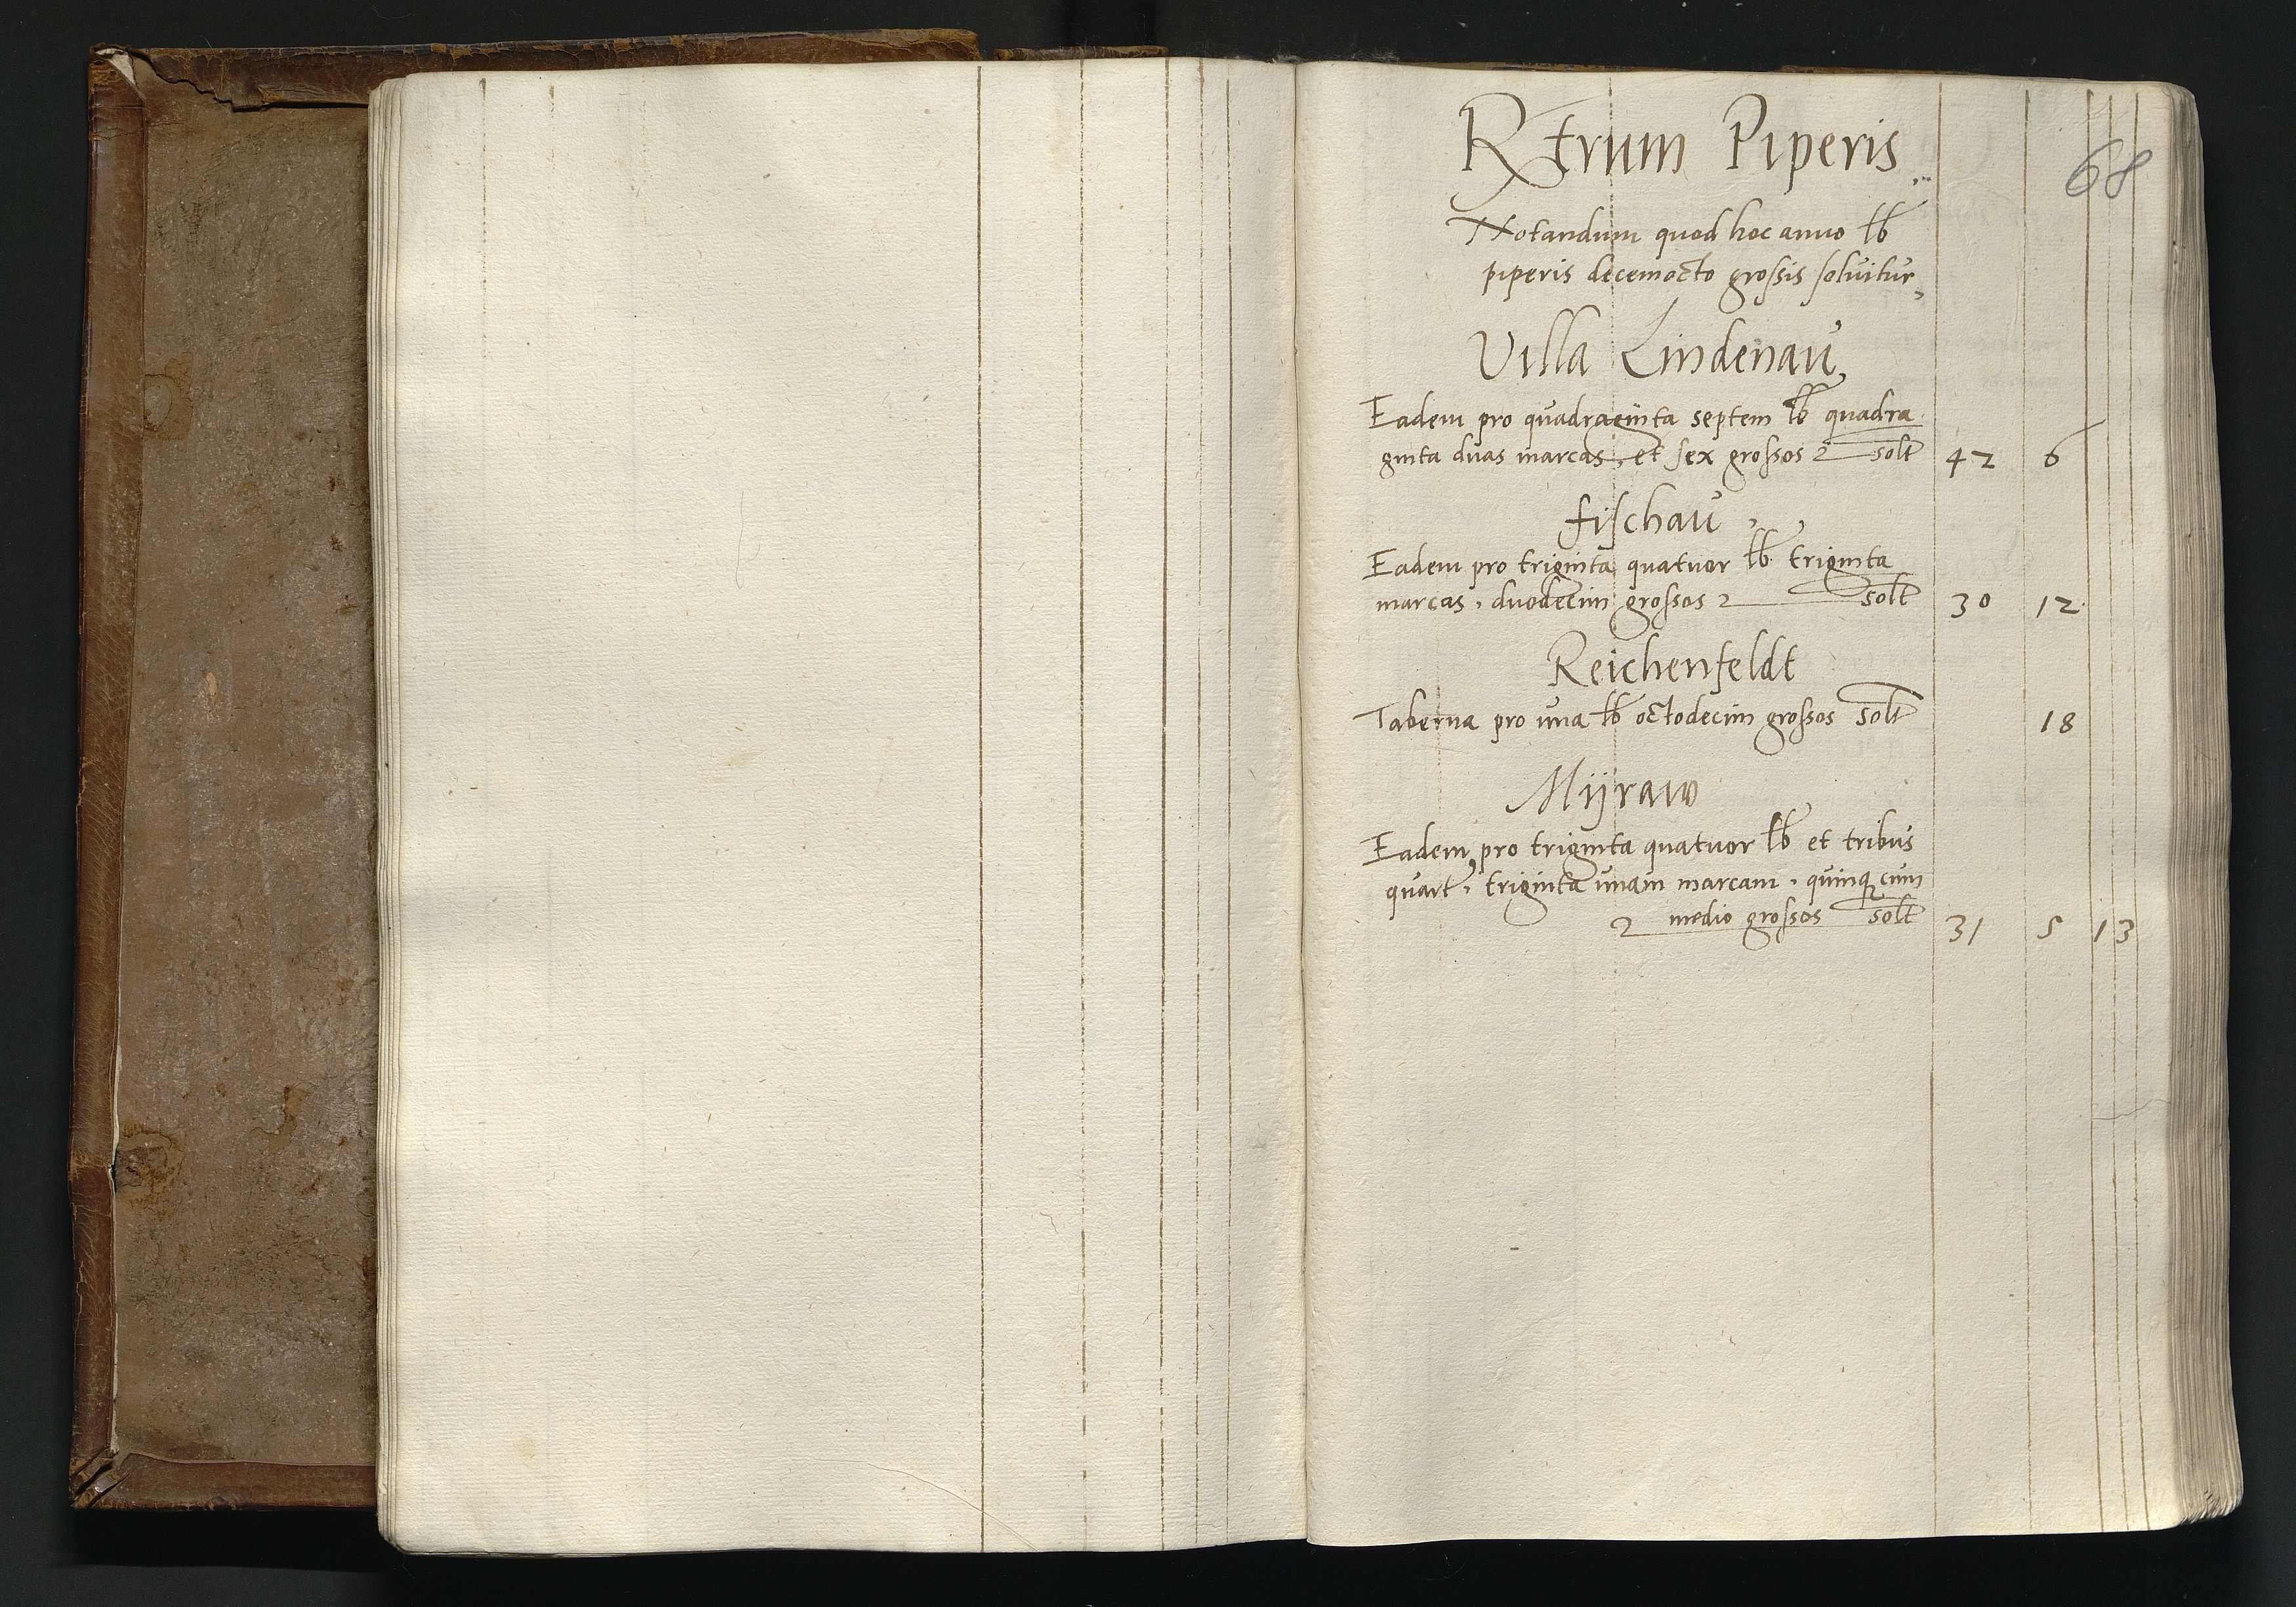 68
Rtrum Piperis
Notandum quod hoc anno lb
piperis decemocto grossis solvitur,
Villa Lindenau,
Eadem pro quadraginta septem lb quadra
ginta duas marcas, et sex grossos solt 42 6
fischau,
Eadem pro triginta quatuor lb triginta
marcas, duodecim grossos solt 30 12
Reichenfeldt
Taberna pro una lb octodecim grossos solt 18
Mijraw
Eadem pro triginta quatuor lb et tribus
quart, triginta unam marcam, quinq cum
medio grossos solt 31 5 1 3